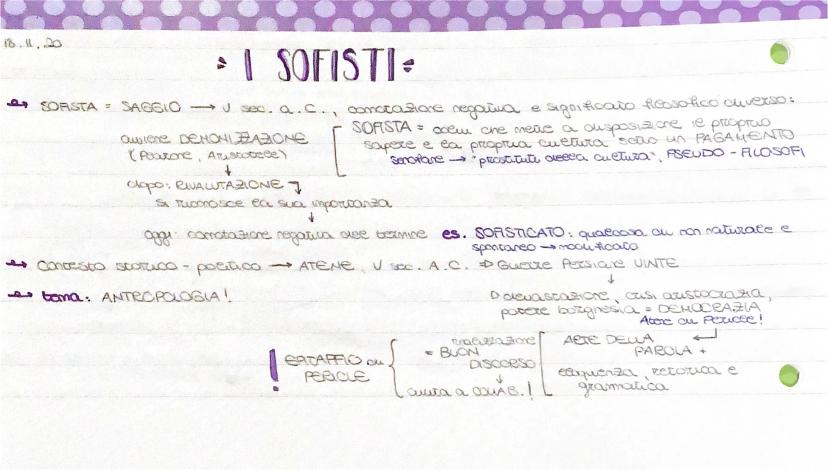 18.11.20
I SOFISTI
SOFISTA = SAGGIO → V sec. a.C., connotazione negativa e significato filosofico diverso:
avviene DEMONIZZAZIONE
(Platone, Aristotele)
SOFISTA = colui che mette a disposizione il proprio
sapere e la propria cultura sotto un PAGAMENTO
Senofane → "prostituti della cultura", PSEUDO-FILOSOFI
dopo: RIVALUTAZIONE
si riconosce la sua importanza
oggi: connotazione negativa del termine es. SOFISTICATO: qualcosa di non naturale e
spontaneo → modificato
Contesto storico-politico → ATENE, V sec. A.C. ⇒ Guerre Persiane VINTE
tema: ANTROPOLOGIA!
devastazione, crisi aristocrazia,
potere borghesia = DEMOCRAZIA
Atene di Pericle!
! EPITAFFIO di
PERICLE
= BUON
DISCORSO
aiuta a COMAB.!
ARTE DELLA
PAROLA +
eloquenza, retorica e
grammatica